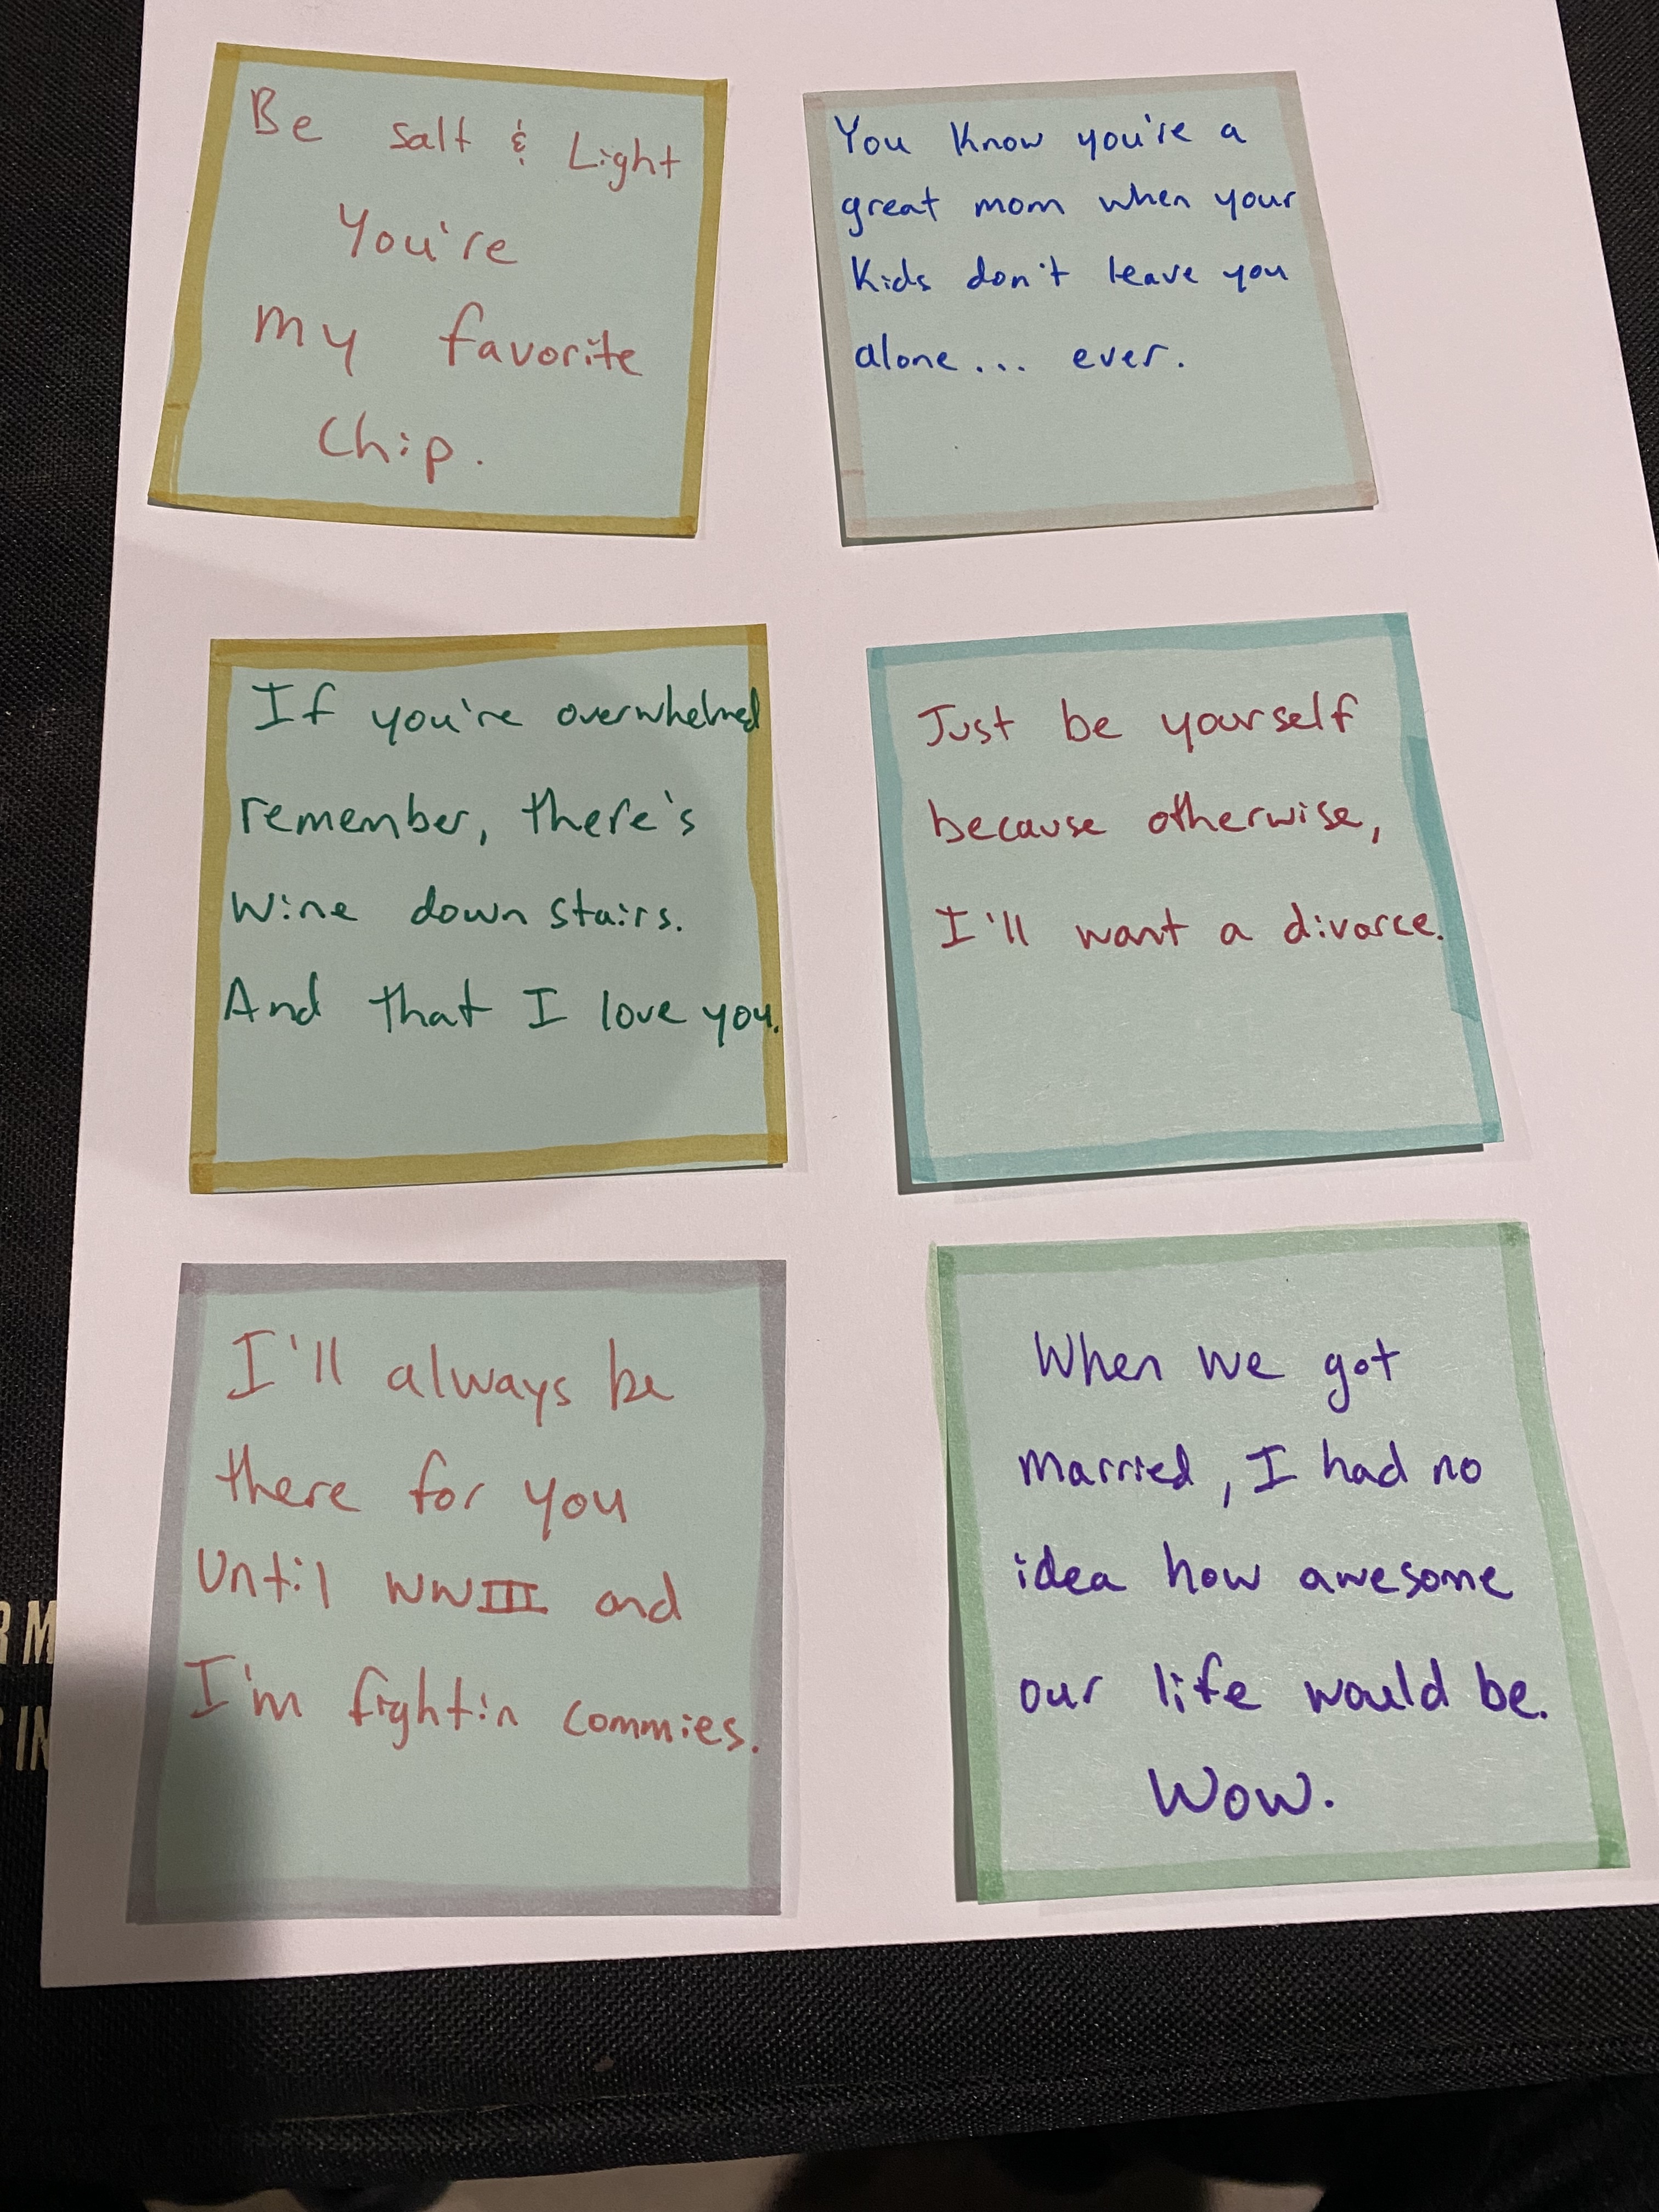 Be salt & Light
You're
my favorite
Chip.
You know you're a
great mom when your
kids don't leave you
alone... ever.
If you're overwhelmed
remember, there's
wine down stairs.
And that I love you.
Just be yourself
because otherwise,
I'll want a divorce.
I'll always be
there for you
until WWIII and
I'm fightin commies.
When we got
married, I had no
idea how awesome
our life would be.
Wow.